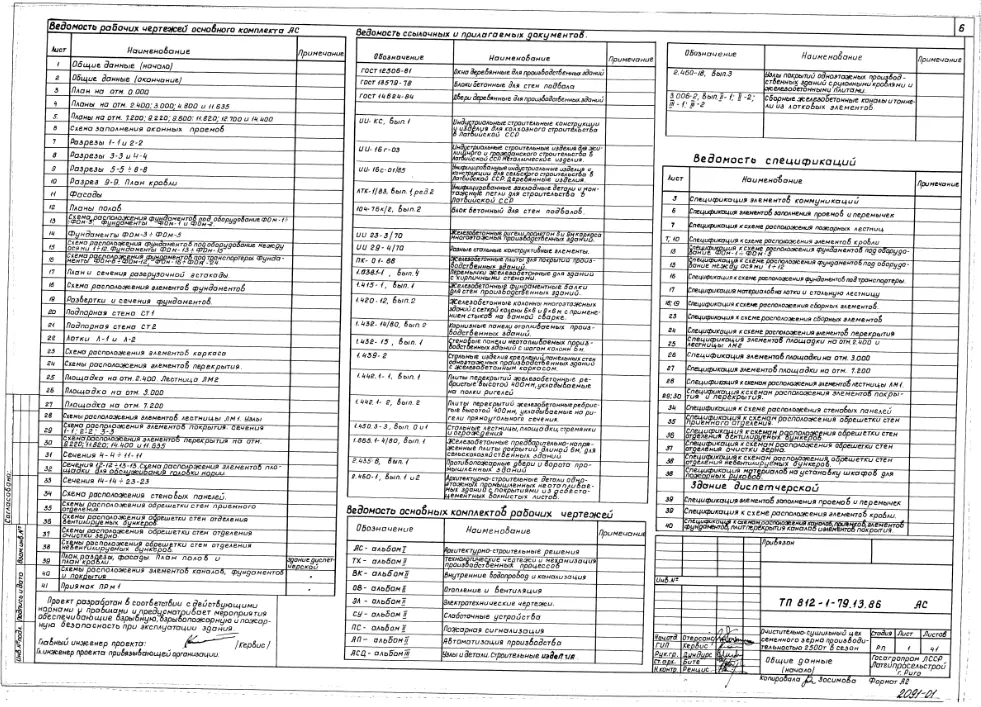 6
Ведомость рабочих чертежей основного комплекта АС
Лист Наименование Примечание
1 Общие данные (начало)
2 Общие данные (окончание)
3 План на отм. 0.000
4 Планы на отм. 2.400; 3.000; 4.800 и 11.635
5 Планы на отм. 7.200; 8.220; 9.600; 11.820; 12.700 и 14.400
6 Схема заполнения оконных проемов
7 Разрезы 1-1 и 2-2
8 Разрезы 3-3 и 4-4
9 Разрезы 5-5 ÷ 8-8
10 Разрез 9-9. План кровли
11 Фасады
12 Планы полов
13 Схема расположения фундаментов под оборудование ФОм-1÷
ФОм-3. Фундаменты ФОм-1 и ФОм-2
14 Фундаменты ФОм-3 ÷ ФОм-5
15 Схема расположения фундаментов под оборудование между
осями 1÷12. Фундаменты ФОм-13 ÷ ФОм-15
16 Схема расположения фундаментов под транспортеры. Фунда-
менты
17 План и сечения разгрузочной эстакады.
18 Схема расположения элементов фундаментов
19 Развертки и сечения фундаментов.
20 Подпорная стена СТ1
21 Подпорная стена СТ2
22 Лотки Л-1 и Л-2
23 Схема расположения элементов каркаса
24 Схемы расположения элементов перекрытия.
25 Площадка на отм. 2.400. Лестница ЛМ2
26 Площадка на отм. 3.000
27 Площадка на отм. 7.200
28 Схемы расположения элементов лестницы ЛМ1. Узлы
29 Схемы расположения элементов покрытия. Сечения
1-1; 2-2; 3-3
30 Схема расположения элементов перекрытия на отм.
8.220; 11.820; 14.400 и 11.635
31 Сечения 4-4 ÷ 11-11
32 Сечения 12-12 ÷ 13-13. Схема расположения элементов пло-
щадки для обслуживания головки нории.
33 Сечения 14-14 ÷ 23-23
34 Схема расположения стеновых панелей.
35 Схемы расположения обрешетки стен приемного
отделения
36 Схемы расположения обрешетки стен отделения
вентилируемых бункеров
37 Схемы расположения обрешетки стен отделения
очистки зерна
38 Схемы расположения обрешетки стен отделения
невентилируемых бункеров.
39 План, разрезы, фасады. План полов и
план кровли здание диспет-
черской
40 Схемы расположения элементов каналов, фундаментов
и покрытия "
41 Приямок ПРм1 "
Проект разработан в соответствии с действующими
нормами и правилами и предусматривает мероприятия
обеспечивающие взрывную, взрывопожарную и пожар-
ную безопасность при эксплуатации здания
Главный инженер проекта: /Кервис/
Гл. инженер проекта привязывающей организации.
Ведомость ссылочных и прилагаемых документов.
Обозначение Наименование Примечание
ГОСТ 12506-81 Окна деревянные для производственных зданий
ГОСТ 13579-78 Блоки бетонные для стен подвала
ГОСТ 14624-84 Двери деревянные для производственных зданий
ИИ-КС, вып. 1 Индустриальные строительные конструкции
и изделия для колхозного строительства
в Латвийской ССР
ИИ-16г-03 Индустриальные строительные изделия для жи-
лищного и гражданского строительства в
Латвийской ССР. Металлические изделия.
ИИ-16с-01/85 Унифицированные индустриальные изделия и
конструкции для сельского строительства в
Латвийской ССР. Деревянные изделия.
ЛТК-1/83, вып. 1, ред. 2 Унифицированные закладные детали и мон-
тажные петли для строительства в
Латвийской ССР
104-ТБК/2, вып. 2 Блок бетонный для стен подвалов.
ИИ 23-3/70 Железобетонные
многоэтажных производственных зданий.
ИИ 29-4/70 Разные стальные конструктивные элементы.
ПК-01-88 Железобетонные плиты для покрытий произ-
водственных зданий.
1.038.1-1, вып. 4 Перемычки железобетонные для зданий
с кирпичными стенами.
1.415-1, вып. 1 Железобетонные фундаментные балки
для стен производственных зданий.
1.420-12, вып. 2 Железобетонные колонны многоэтажных
зданий с сеткой колонн 6×6 и 9×6м с примене-
нием стыков на ванной сварке.
1.432-14/80, вып. 2 Карнизные панели отапливаемых произ-
водственных зданий.
1.432-15, вып. 1 Стеновые панели неотапливаемых произ-
водственных зданий с шагом колонн 6м.
1.439-2 Стальные изделия креплений панельных стен
одноэтажных производственных зданий
с железобетонным каркасом.
1.442.1-1, вып. 1 Плиты перекрытий железобетонные ре-
бристые высотой 400мм, укладываемые
на полки ригелей
1.442.1-2, вып. 2 Плиты перекрытий железобетонные ребрис-
тые высотой 400мм, укладываемые на ри-
гели прямоугольного сечения.
1.450.3-3, вып. 0 и 1 Стальные лестницы, площадки, стремянки
и ограждения
1.865.1-4/80, вып. 1 Железобетонные предварительно-напря-
женные плиты покрытий длиной 6м, для
сельскохозяйственных зданий
2.435-8, вып. 1 Противопожарные двери и ворота про-
мышленных зданий
2.460-1, вып. 1 и 2 Архитектурно-строительные детали одно-
этажных промышленных неотапливае-
мых зданий с покрытиями из асбесто-
цементных волнистых листов.
Ведомость основных комплектов рабочих чертежей
Обозначение Наименование Примечание
АС - альбом II Архитектурно-строительные решения
ТХ - альбом II Технологические чертежи и механизация
производственных процессов
ВК - альбом II Внутренние водопровод и канализация
ОВ - альбом II Отопление и вентиляция
ЭЛ - альбом II Электротехнические чертежи.
СУ - альбом II Слаботочные устройства
ПС - альбом II Пожарная сигнализация
АП - альбом II Автоматизация производства
АСД - альбом II Узлы и детали. Строительные изделия
Обозначение Наименование Примечание
2.460-18, вып. 3 Узлы покрытий одноэтажных производ-
ственных зданий с рулонными кровлями и
железобетонными плитами.
3.006-2, вып. II-1; II-2;
III-1; III-2 Сборные железобетонные каналы и тонне-
ли из лотковых элементов.
Ведомость спецификаций
Лист Наименование Примечание
3 Спецификация элементов коммуникаций
6 Спецификация элементов заполнения проемов и перемычек
7 Спецификация к схеме расположения пожарных лестниц
7; 10 Спецификация к схеме расположения элементов кровли
13 Спецификация к схеме расположения фундаментов под оборудо-
вание ФОм-1 ÷ ФОм-3
15 Спецификация к схеме расположения фундаментов под оборудо-
вание между осями 1÷12
16 Спецификация к схеме расположения фундаментов под транспортеры.
17 Спецификация материалов на лотки и стальную лестницу
18; 19 Спецификация к схеме расположения сборных элементов.
23 Спецификация к схеме расположения сборных элементов
24 Спецификация к схеме расположения элементов перекрытия
25 Спецификация элементов площадки на отм. 2.400 и
лестницы ЛМ2
26 Спецификация элементов площадки на отм. 3.000
27 Спецификация элементов площадки на отм. 7.200
28 Спецификация к схемам расположения элементов лестницы ЛМ1.
29; 30 Спецификация к схемам расположения элементов покры-
тия и перекрытия.
34 Спецификация к схеме расположения стеновых панелей
35 Спецификация к схемам расположения обрешетки стен
приемного отделения.
36 Спецификация к схемам расположения обрешетки стен
отделения вентилируемых бункеров.
37 Спецификация к схемам расположения обрешетки стен
отделения очистки зерна.
38 Спецификация к схемам расположения обрешетки стен
отделения невентилируемых бункеров.
38 Спецификация материалов на установку шкафов для
пожарных рукавов.
Здание диспетчерской
39 Спецификация элементов заполнения проемов и перемычек
39 Спецификация к схеме расположения элементов кровли.
40 Спецификация к схемам расположения каналов, приямков, элементов
фундаментов, плит перекрытия каналов и элементов покрытия.
Привязан
Инв. №
ТП 812-1-79.13.86 АС
Нач. отд. Отерсонс
ГИП Кервис
Рук. гр. Дундурс
Ст. арх. Бите
Н. контр. Ренцис
Очистительно-сушильный цех
семенного зерна производи-
тельностью 2500т в сезон
Стадия Лист Листов
РП 1 41
Общие данные
(начало)
Госагропром ЛССР
Латгипросельстрой
г. Рига
Копировала Зосимова Формат А2
2091-01
Согласовано:
Взам. инв. №
Подпись и дата
Инв. № подл.